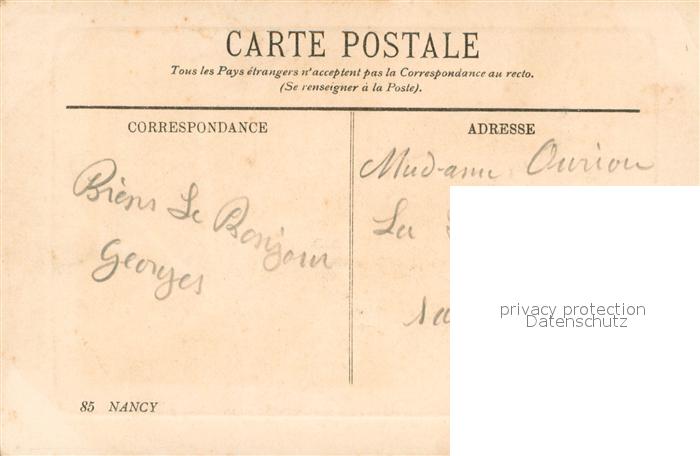 CARTE POSTALE
Tous les Pays étrangers n'acceptent pas la Correspondance au recto.
(Se renseigner à la Poste).
CORRESPONDANCE
ADRESSE
Biens Le Bonjour
Georges
Madame Ouriou
La
85 NANCY
privacy protection
Datenschutz